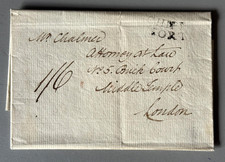 Mr. Chalmer
Attorney at Law
No. 5. Brick Court
Middle Temple
London
1/6